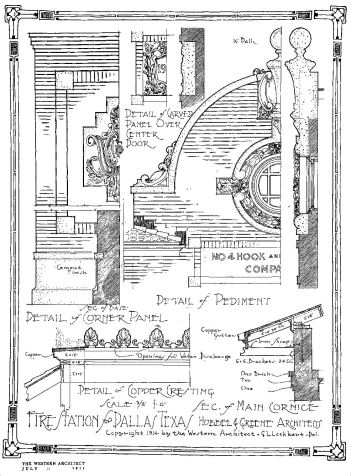 16" Ball
DETAIL of CARVED
PANEL OVER
CENTER
DOOR
NO 4 HOOK AND
COMPA
Cement
Finish
SEC. of BASE
DETAIL of CORNER PANEL
DETAIL of PEDIMENT
Copper
Gutter
Copper
Opening for Water Discharge
DETAIL of COPPER CRESTING
SCALE
SEC. of MAIN CORNICE
FIRE STATION for DALLAS TEXAS
HUBBELL & GREENE ARCHITECTS
Copyright 1914 by the Western Architect - G.L. Lockhart - Del.
THE WESTERN ARCHITECT
JULY 1914